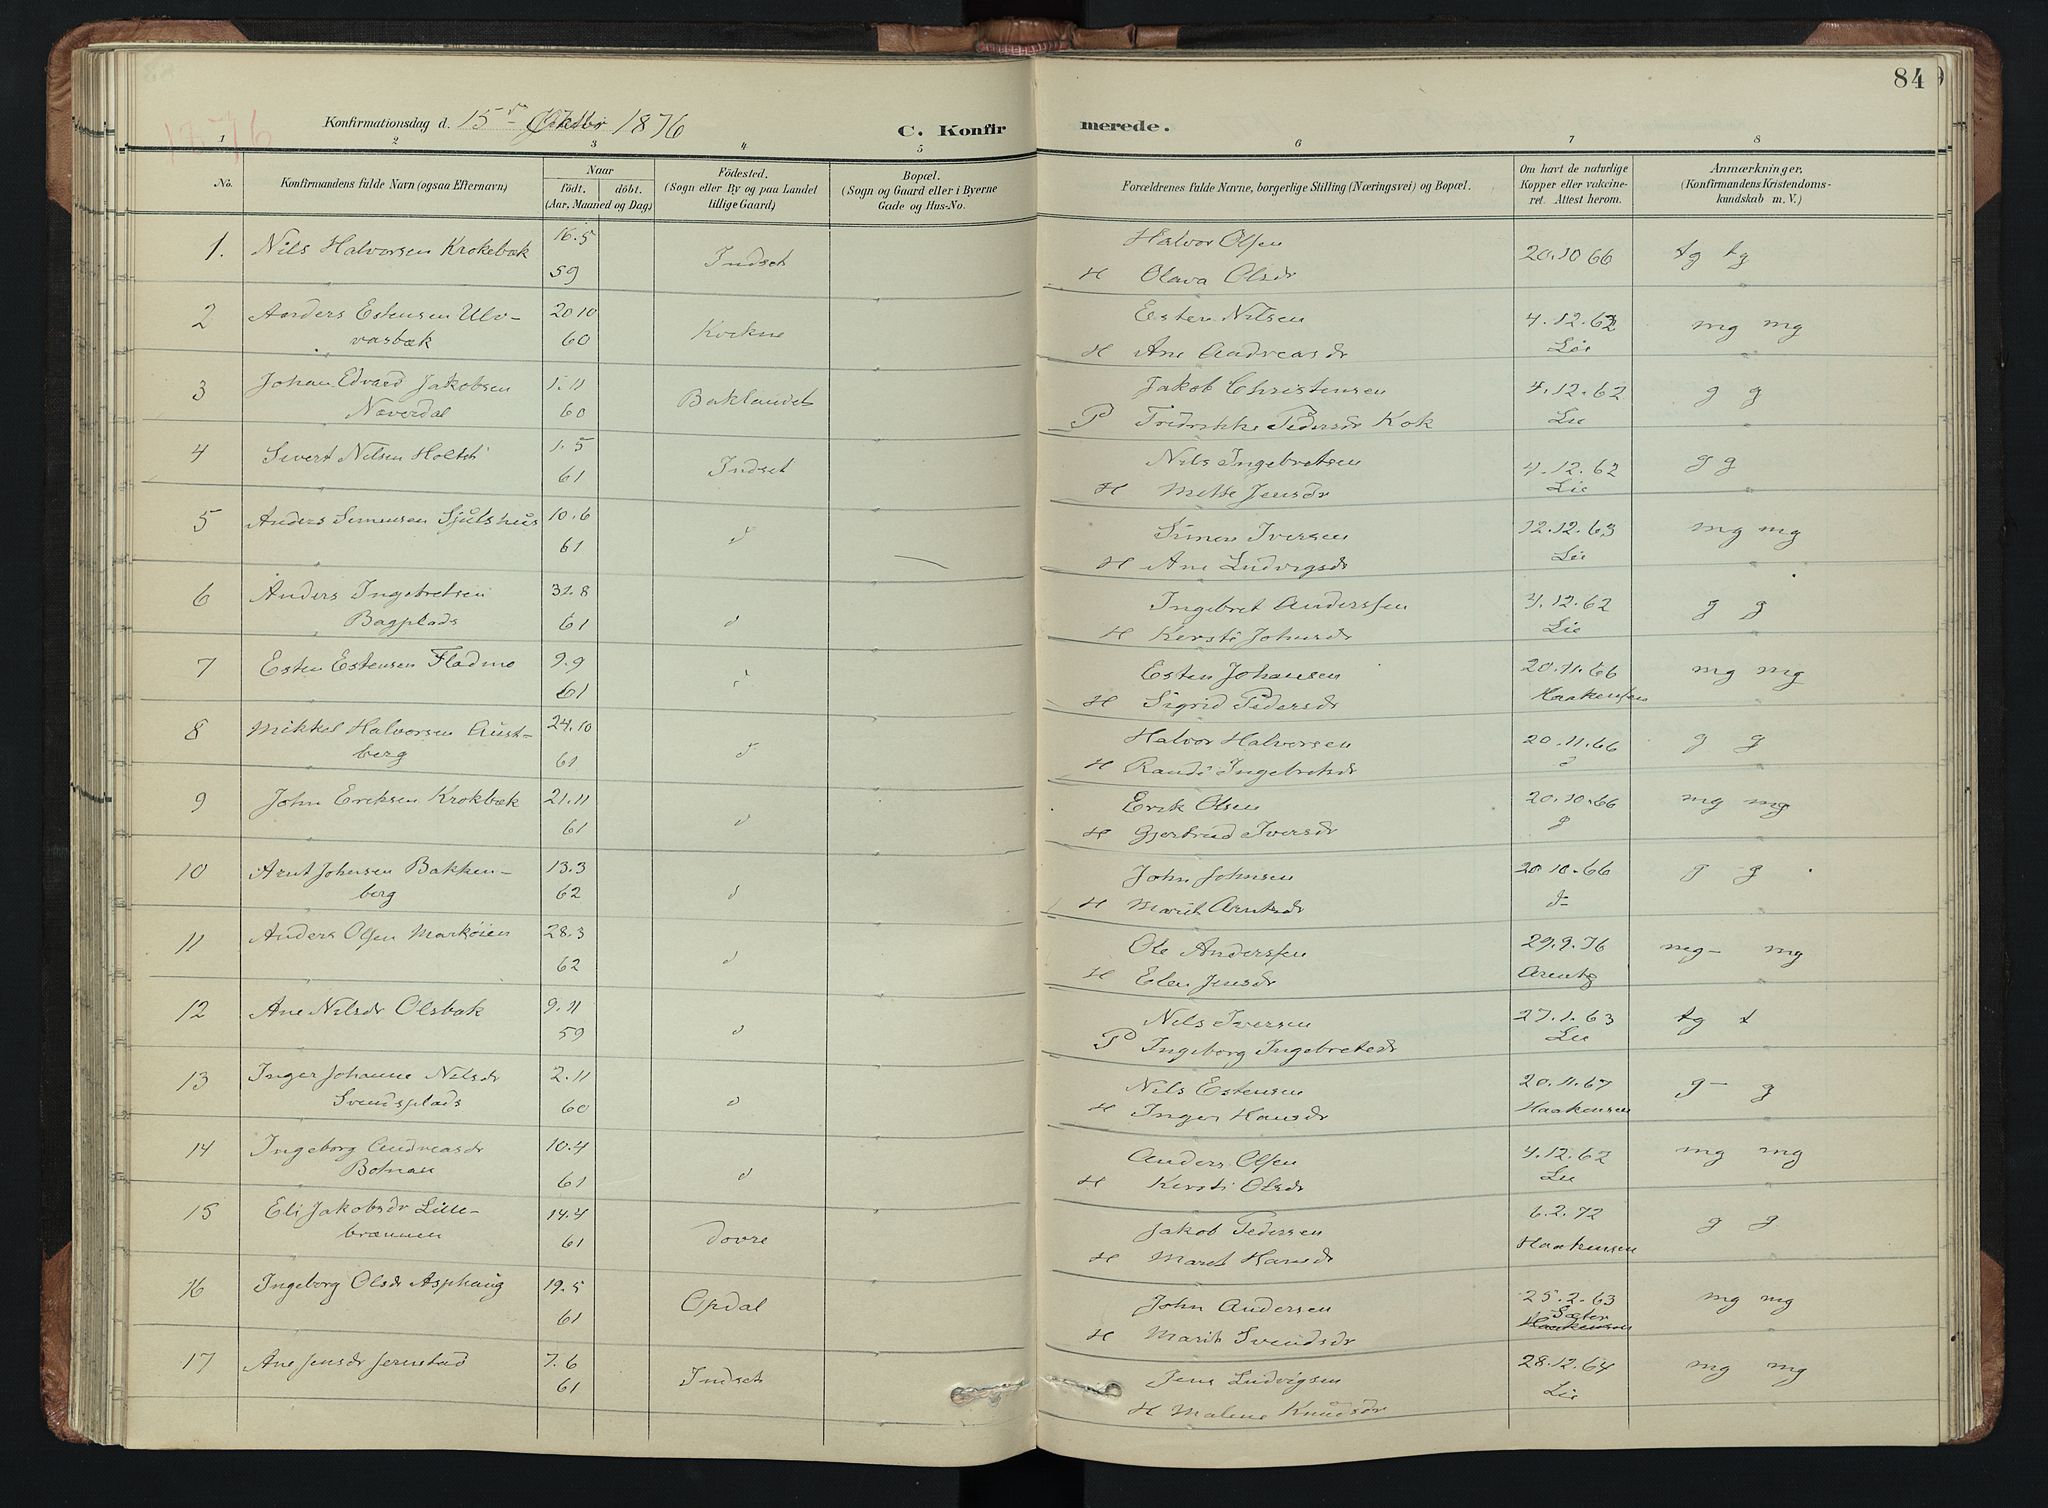 84
1876
Konfirmationsdag d. 15de Oktbr 1876
C. Konfirmerede.
1 2 3 4 5 6 7 8
No.
Konfirmandens fulde Navn (ogsaa Efternavn)
Naar
födt. döbt.
(Aar, Maaned og Dag)
Födested.
(Sogn eller By og paa Landet
tillige Gaard)
Bopæl.
(Sogn og Gaard eller i Byerne
Gade og Hus-No.
Forældrenes fulde Navne, borgerlige Stilling (Næringsvei) og Bopæl.
Om havt de naturlige
Kopper eller vakcine-
ret. Attest herom.
Anmærkninger.
(Konfirmandens Kristendoms-
kundskab m. V.)
1. Nils Halvorsen Krokebæk 16.5 Indset Halvor Olsen 20.10 66 tg tg
59 H Olava Olsdr
2 Anders Estensen Ulv- 20 10 Kvikne Esten Nilsen 4.12.62 mg mg
vasbæk 60 H Ane Andreasdr Lie
3 Johan Edvard Jakobsen 1.11 Baklandet Jakob Christensen 4.12.62 g g
Næverdal 60 P Fredrikke Pedersdr Kok Lie
4 Sivert Nilsen Holtet 1.5 Indset Nils Ingebretsen 4.12.62 g g
61 H Mette Jensdr Lie
5 Anders Simensen Sjulshus 10.6 d Simen Iversen 12.12.63 mg mg
61 H Ane Ludvigsdr Lie
6 Anders Ingebretsen 31.8 Ingebret Anderssen 4.12.62 g g
Bagplads 61 d H Kersti Johnsdr Lie
7 Esten Estensen Fladmo 9.9 Esten Johansen 20.11.66 mg mg
61 d H Sigrid Pedersdr Haakensen
8 Mikkel Halvorsen Aust- 24.10 Halvor Halvorsen 20.11.66 g g
berg 61 d H Randi Ingebretsdr d
9 John Eriksen Krokbæk 21.11 Erik Olsen 20.10.66 mg mg
61 d H Gjertrud Iversdr d
10 Arnt Johnsen Bakken- 13.3 John Johnsen 20 10.66 g g
berg 62 d H Marit Arntsdr d
11 Anders Olsen Markøien 28.3 Ole Anderssen 29.9.76 mg mg
62 d H Elen Jensdr Arentz
12 Ane Nilsdr Olsbak 9.11 Nils Iversen 27.1.63 tg t
59 d P Ingeborg Ingebretsdr Lie
13 Inger Johanne Nilsdr 2.11 Nils Estensen 20.11.67 g g
Svendsplads 60 d H Inger Hansdr Haakensen
14 Ingeborg Andreasdr 10.4 Anders Olsen 4.12.62 mg mg
Botnan 61 d H Kersti Olsdr Lie
15 Eli Jakobsdr Lille- 14.4 Jakob Pedersen 6.2.72 g g
brænnen 61 Dovre H Marit Hansdr Haakensen
16 Ingeborg Olsdr Asphaug 19.5 John Andersen 25.2.63 mg mg
61 Opdal H Marit Svendsdr Sæter
Haakensen
17 Ane Jensdr Jernstad 7.6 Jens Ludvigsen 28.12.64 mg mg
61 Indset H Malene Knudsdr Lie